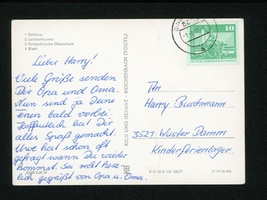 1 Rathaus
2
3 Polytechnische Oberschule
4 Markt
Lieber Harry!
Viele Grüße senden
Dir Opa und Oma.
Nun sind ja Deine
Ferien bald vorbei.
Hoffentlich hat Dir
alles Spaß gemacht.
Uwe hat schon oft
gefragt wann Du wieder
kommst. Sei recht herz-
lich gegrüßt von Opa u. Oma.
10
An
Harry Buschmann
3527 Wuster Damm
Kinderferienlager.